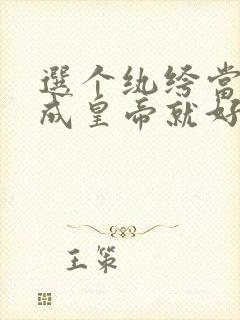 選个纨绔當
成皇帝就好
王策